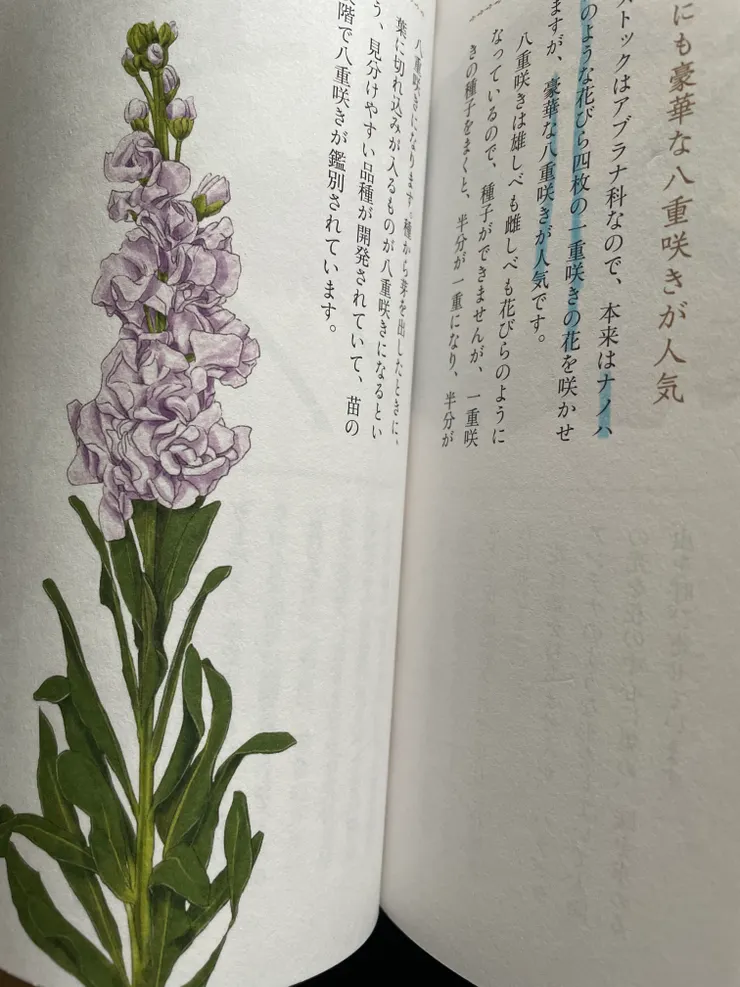 にも豪華な八重咲きが人気
ストックはアブラナ科なので、本来はナノハ
のような花びら四枚の一重咲きの花を咲かせ
ますが、豪華な八重咲きが人気です。
八重咲きは雄しべも雌しべも花びらのように
なっているので、種子ができませんが、一重咲
きの種子をまくと、半分が一重になり、半分が
八重咲きになります。種から芽を出したときに、
葉に切れ込みが入るものが八重咲きになるとい
う、見分けやすい品種が開発されていて、苗の
階で八重咲きが鑑別されています。